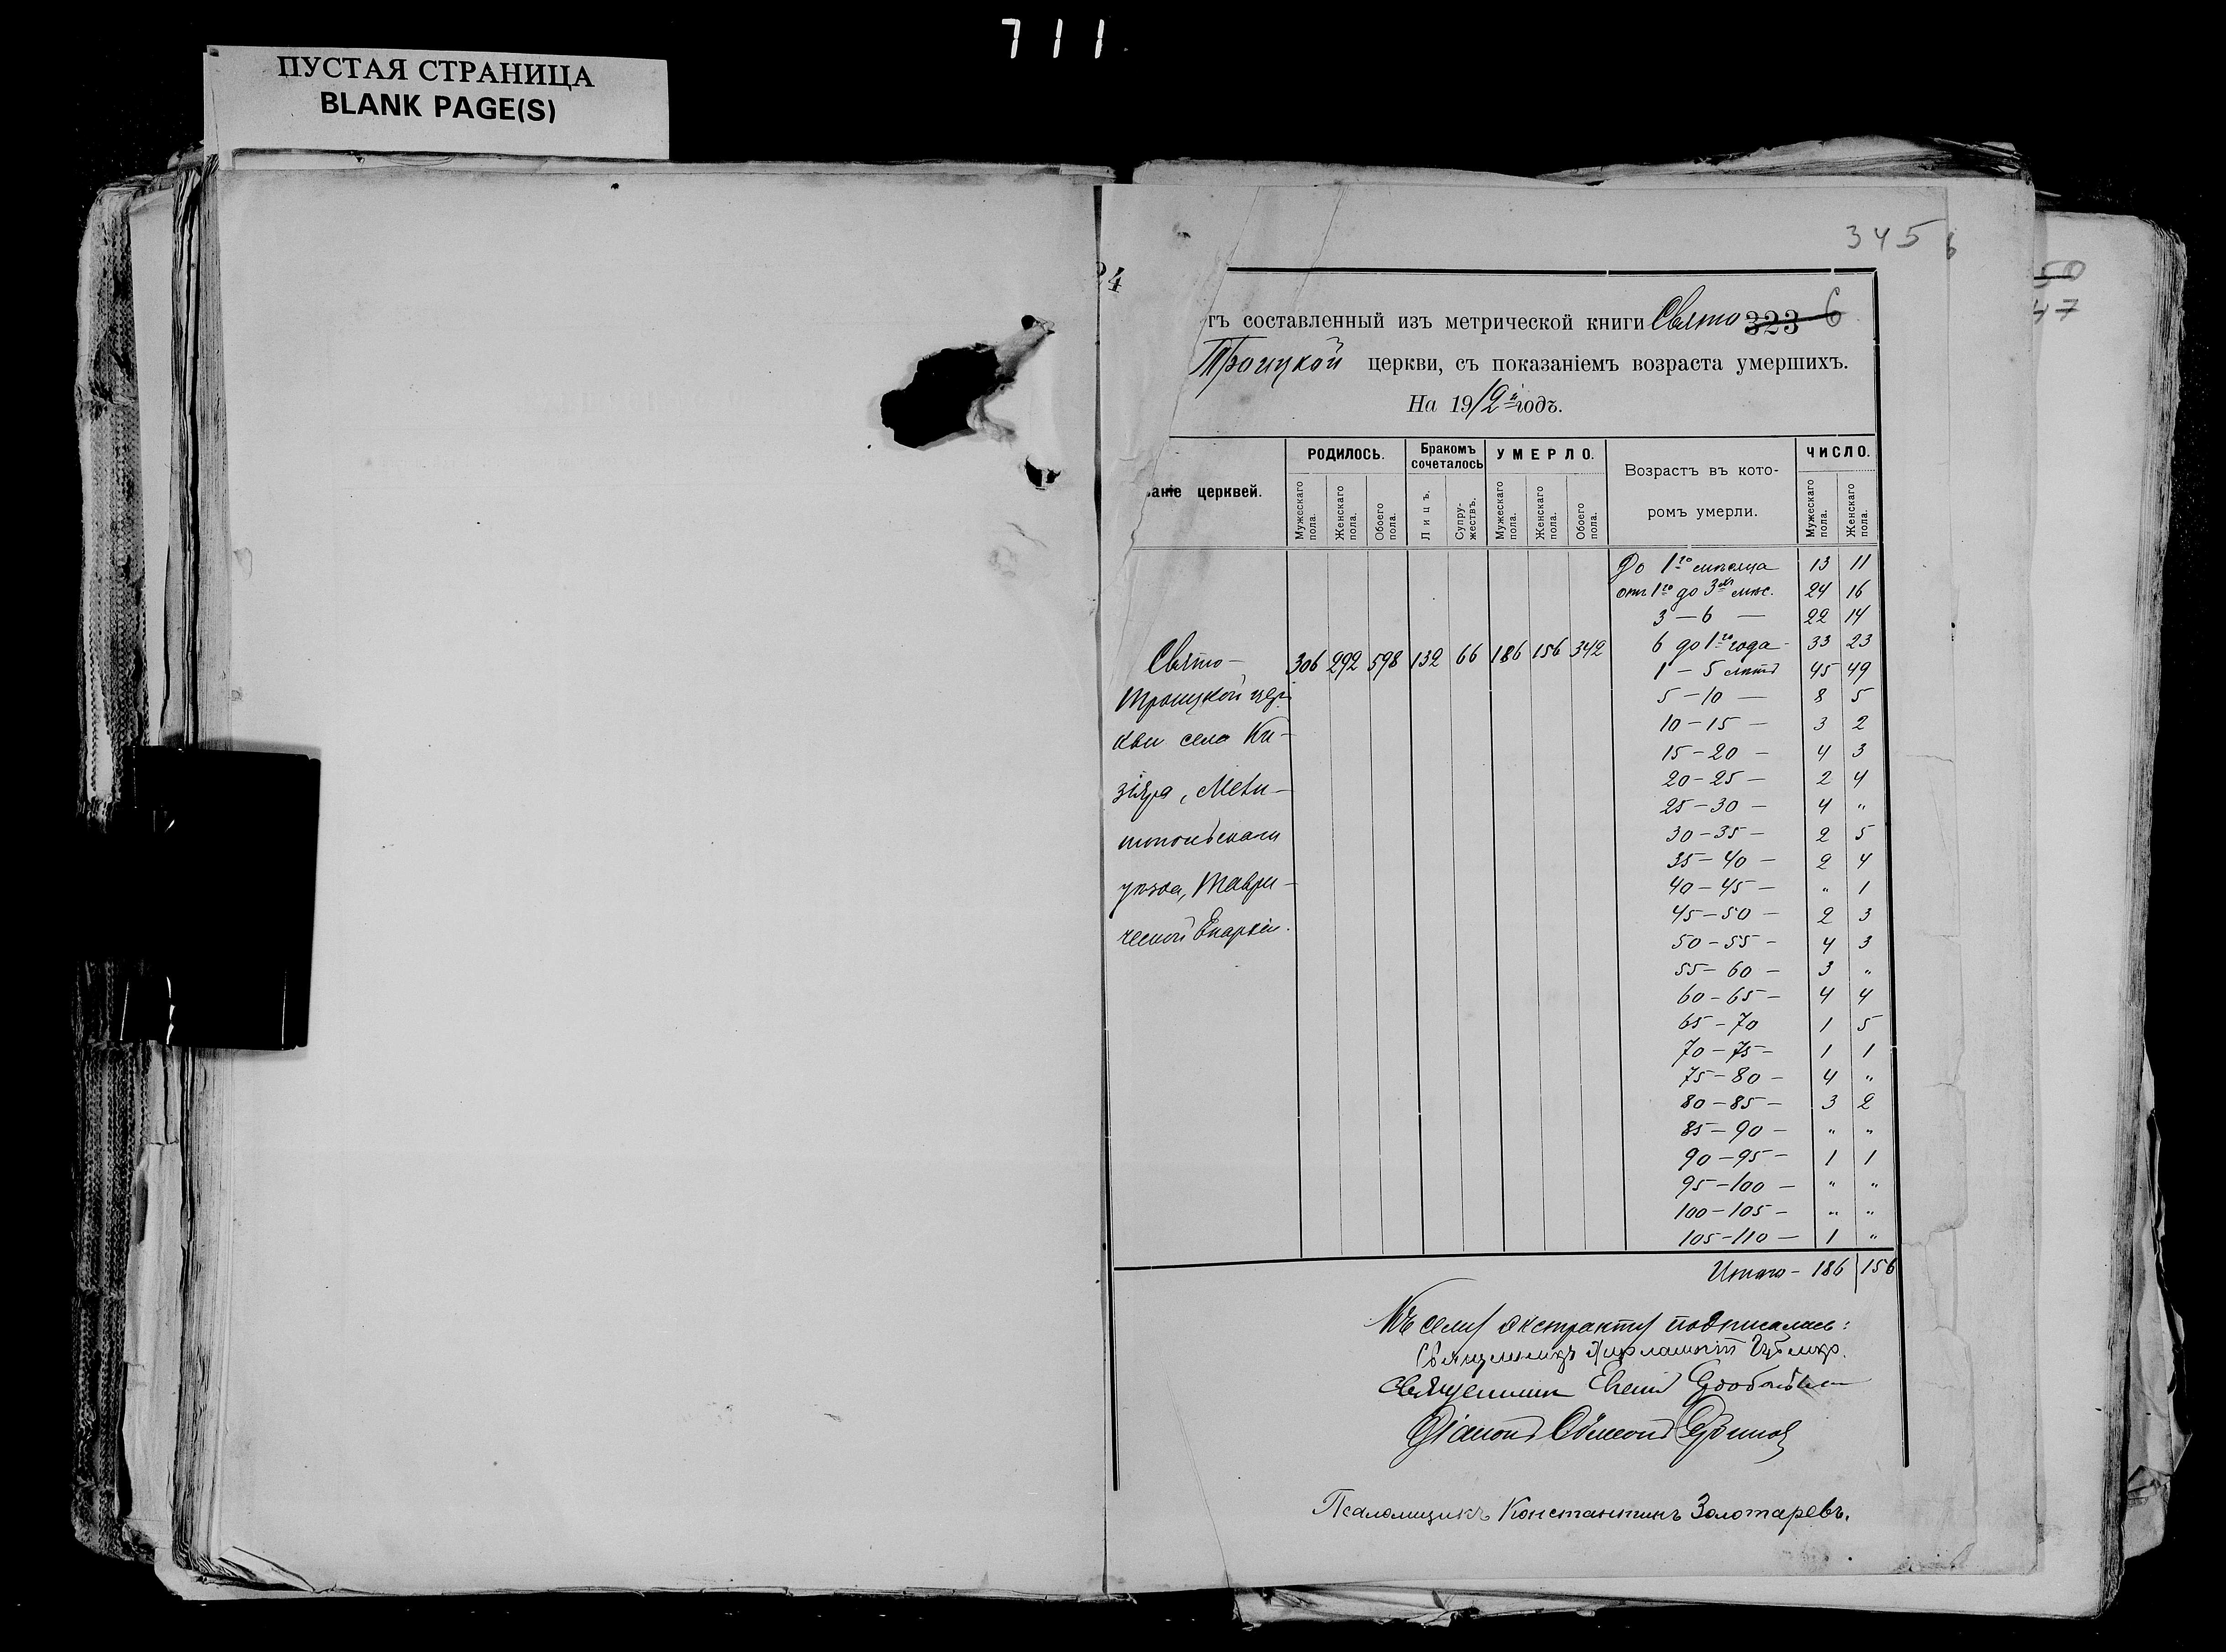 711
ПУСТАЯ СТРАНИЦА
BLANK PAGE(S)
345
50
47
24
тъ составленный изъ метрической книги Свято 323 6
Троицкой церкви, съ показаніемъ возраста умершихъ.
На 1912й годъ.
ваніе церквей.
РОДИЛОСЬ. Мужескаго пола. Женскаго пола. Обоего пола.
Бракомъ сочеталось Лицъ. Супружествъ.
УМЕРЛО. Мужескаго пола. Женскаго пола. Обоего пола.
Возрастъ въ которомъ умерли.
ЧИСЛО. Мужескаго пола. Женскаго пола.
Свято- 306 292 598 132 66 186 156 342
Троицкой цер-
кви села Ки-
зіяра, Мели-
топольскаго
уѣзда, Таври-
ческой Епархіи.
До 1го мѣсяца 13 11
отъ 1го до 3хъ мѣс. 24 16
3 – 6 — 22 14
6 до 1го года - 33 23
1 – 5 лѣтъ 45 49
5 – 10 — 8 5
10 – 15 — 3 2
15 – 20 – 4 3
20 – 25 – 2 4
25 – 30 – 4 "
30 – 35 – 2 5
35 – 40 – 2 4
40 – 45 – " 1
45 – 50 – 2 3
50 – 55 – 4 3
55 – 60 – 3 "
60 – 65 – 4 4
65 – 70 1 5
70 – 75 – 1 1
75 – 80 – 4 "
80 – 85 – 3 2
85 – 90 – " "
90 – 95 – 1 1
95 – 100 – " "
100 – 105 – " "
105 – 110 – 1 "
Итого – 186 156
Къ сему экстракту подписались:
Священникъ
Священникъ
Діаконъ Симеонъ
Псаломщикъ Константинъ Золотаревъ.